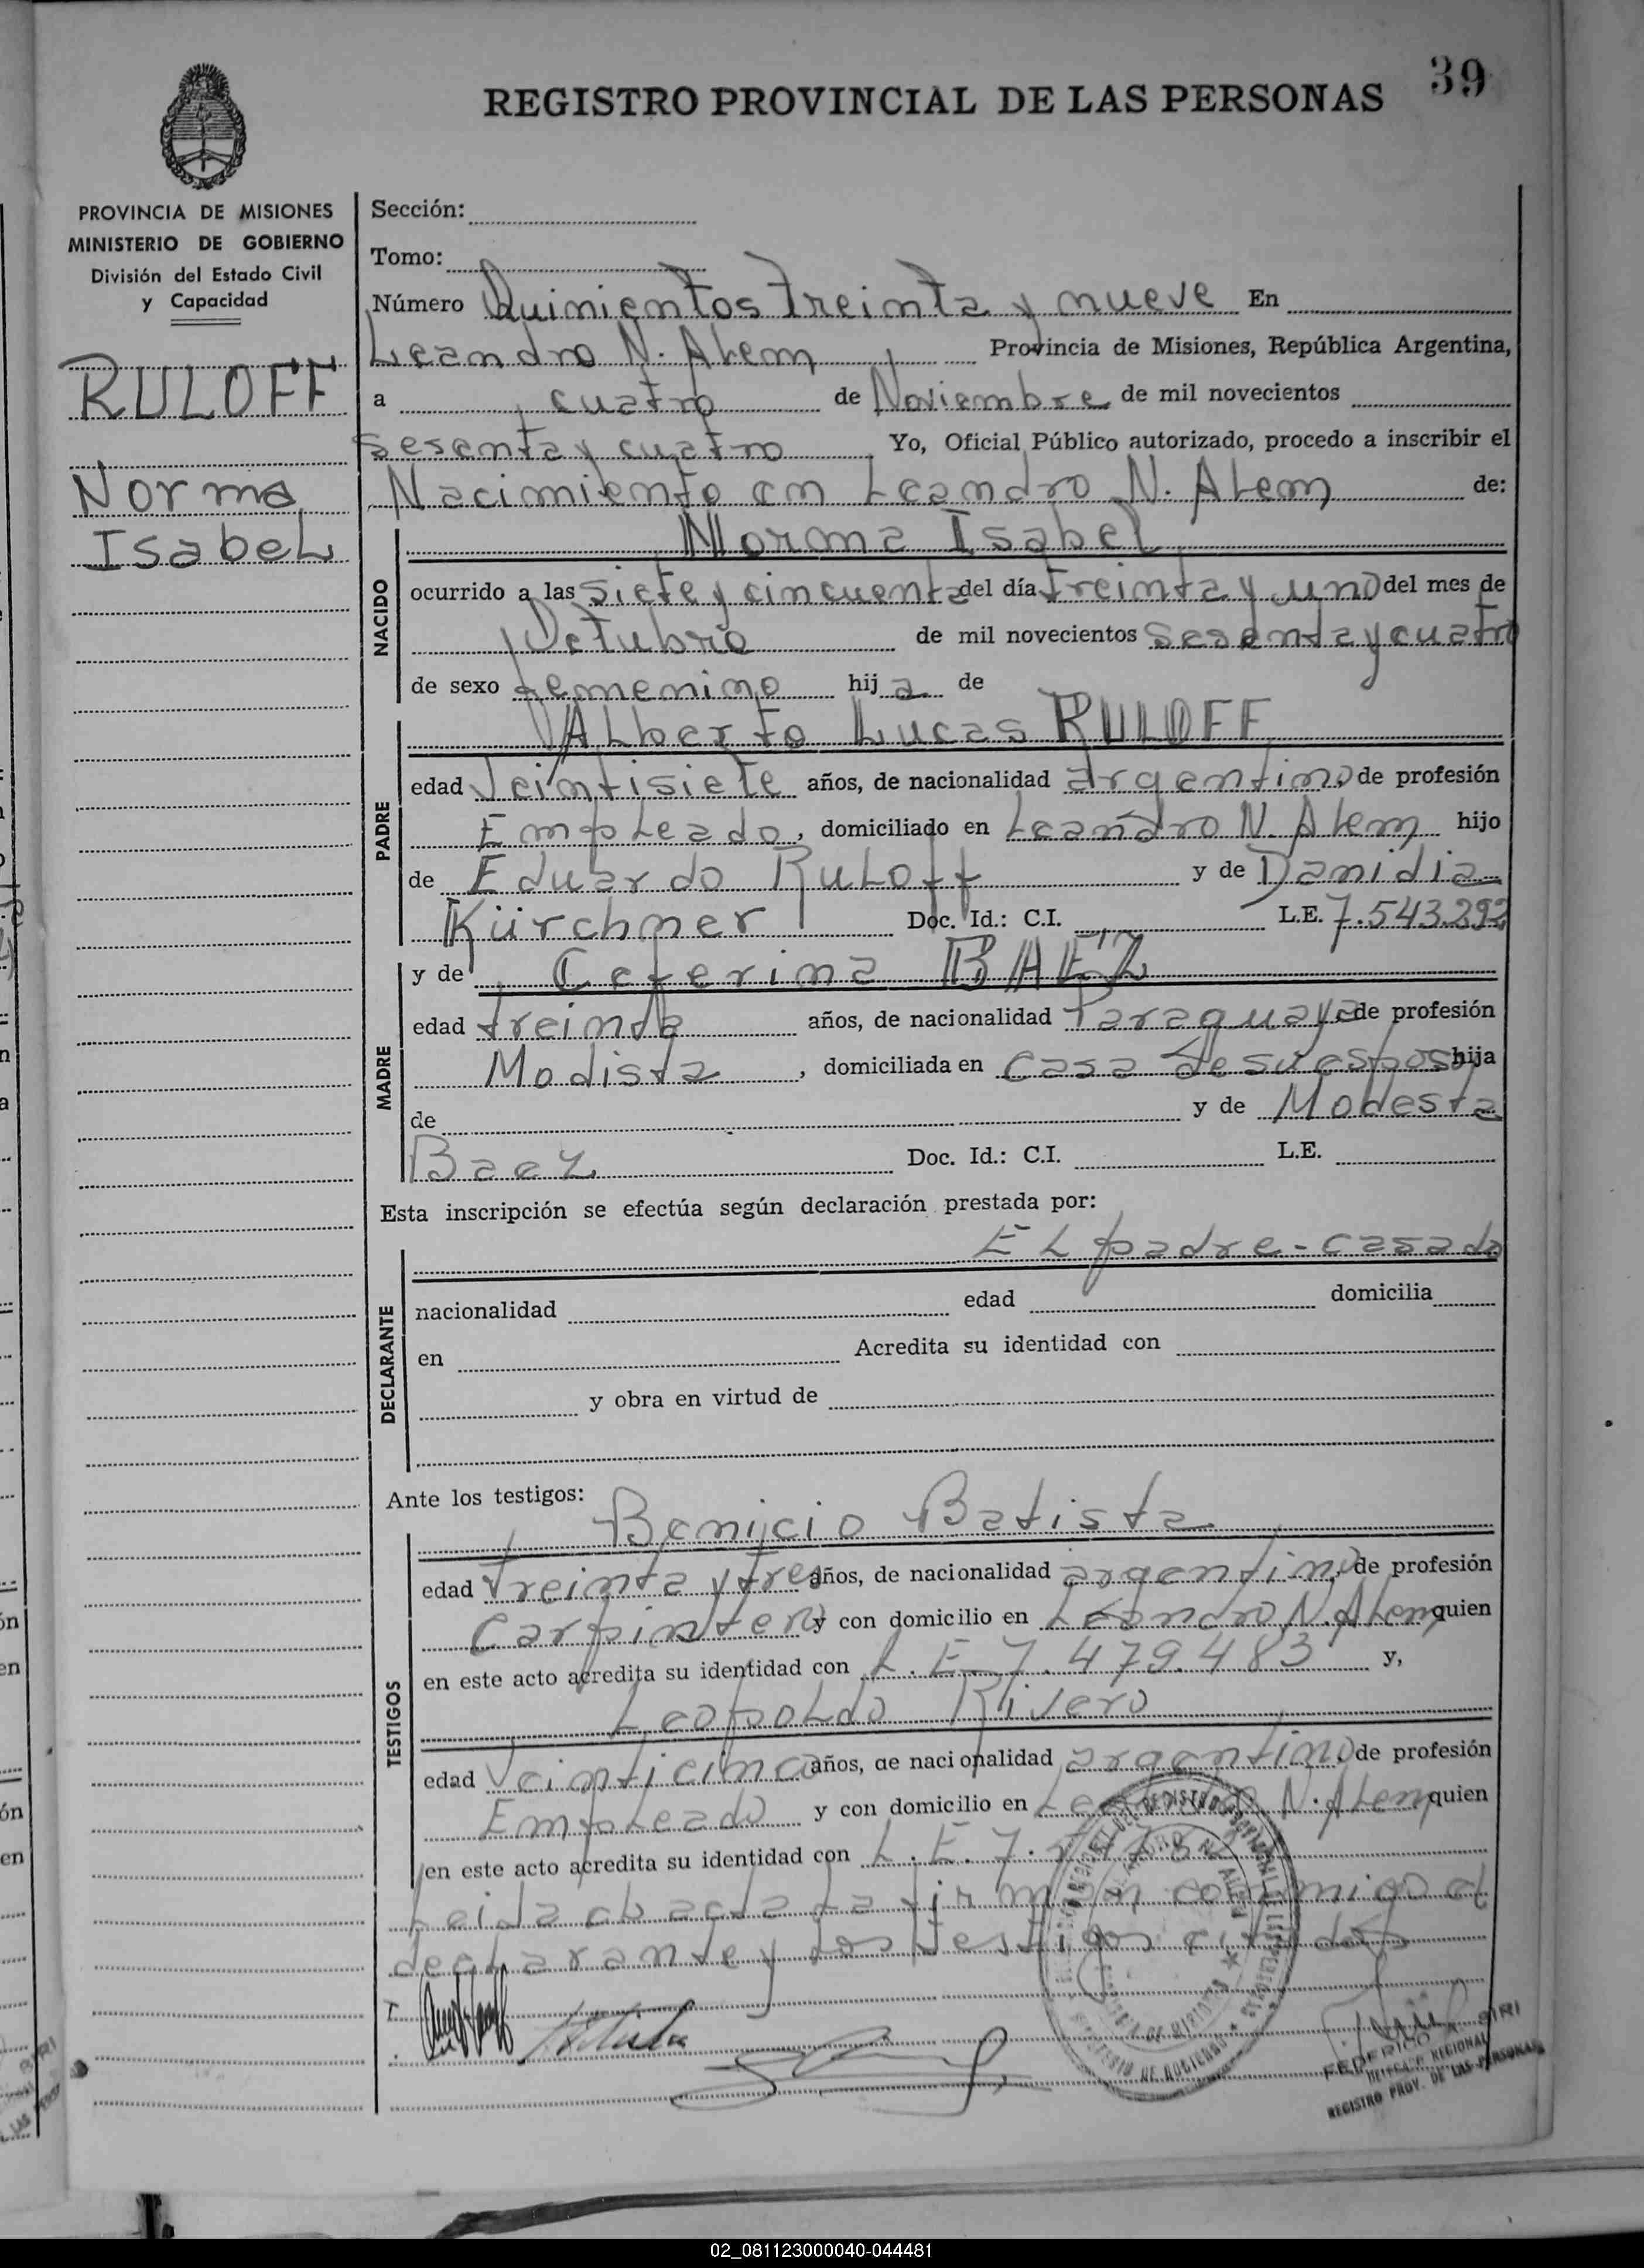 39
REGISTRO PROVINCIAL DE LAS PERSONAS
PROVINCIA DE MISIONES
MINISTERIO DE GOBIERNO
División del Estado Civil
y Capacidad
RULOFF
Norma
Isabel
Sección:
Tomo:
Número Quinientos treinta y nueve En
Leandro N. Alem Provincia de Misiones, República Argentina,
a cuatro de Noviembre de mil novecientos
sesenta y cuatro Yo, Oficial Público autorizado, procedo a inscribir el
Nacimiento en Leandro N. Alem de:
NACIDO
Norma Isabel
ocurrido a las siete y cincuenta del día treinta y uno del mes de
Octubre de mil novecientos sesenta y cuatro
de sexo femenino hij a de
PADRE
Alberto Lucas RULOFF
edad Veintisiete años, de nacionalidad argentino de profesión
Empleado, domiciliado en Leandro N. Alem hijo
de Eduardo Ruloff y de Danidia
Kürchner Doc. Id.: C.I. L.E. 7.543.292
MADRE
y de Ceferina BAEZ
edad treinta años, de nacionalidad Paraguaya de profesión
Modista, domiciliada en casa de su esposo hija
de y de Modesta
Baez Doc. Id.: C.I. L.E.
Esta inscripción se efectúa según declaración prestada por:
DECLARANTE
El padre - casado
nacionalidad edad domicilia
en Acredita su identidad con
y obra en virtud de
Ante los testigos:
TESTIGOS
Benicio Batista
edad treinta y tres años, de nacionalidad argentino de profesión
Carpintero y con domicilio en Leandro N. Alem quien
en este acto acredita su identidad con L.E. 7.479.483 y,
Leopoldo Rivero
edad Veinticinco años, de nacionalidad argentino de profesión
Empleado y con domicilio en Leandro N. Alem quien
en este acto acredita su identidad con L.E. 7.
Leida el acta la firman conmigo el
declarante y los testigos citados
FEDERICO
DELEGADO REGIONAL
REGISTRO PROV. DE LAS PERSONAS
02_081123000040-044481